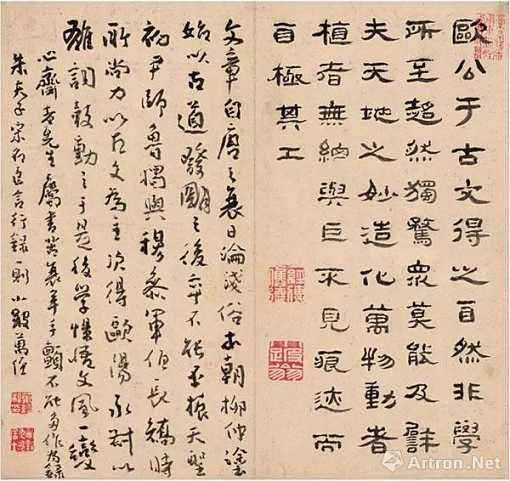 歐公于古文得之自然非學
所至超然獨騖衆莫能及譬
夫天地之妙造化萬物動者
植者無細與巨不見痕迹而
自極其工
文章自唐之衰日淪淺俗本朝柳仲塗
始以古道發明之後卒不能丕振天聖
初尹師魯獨與穆參軍伯長矯時
所尚力以古文為主次得歐陽永叔以
雄詞鼓動之于是後學悚悟文風一變
心齋老先生屬書茲衰年手顫不能多作為錄
朱夫子宋名臣言行錄一則 萬經
Artron.Net